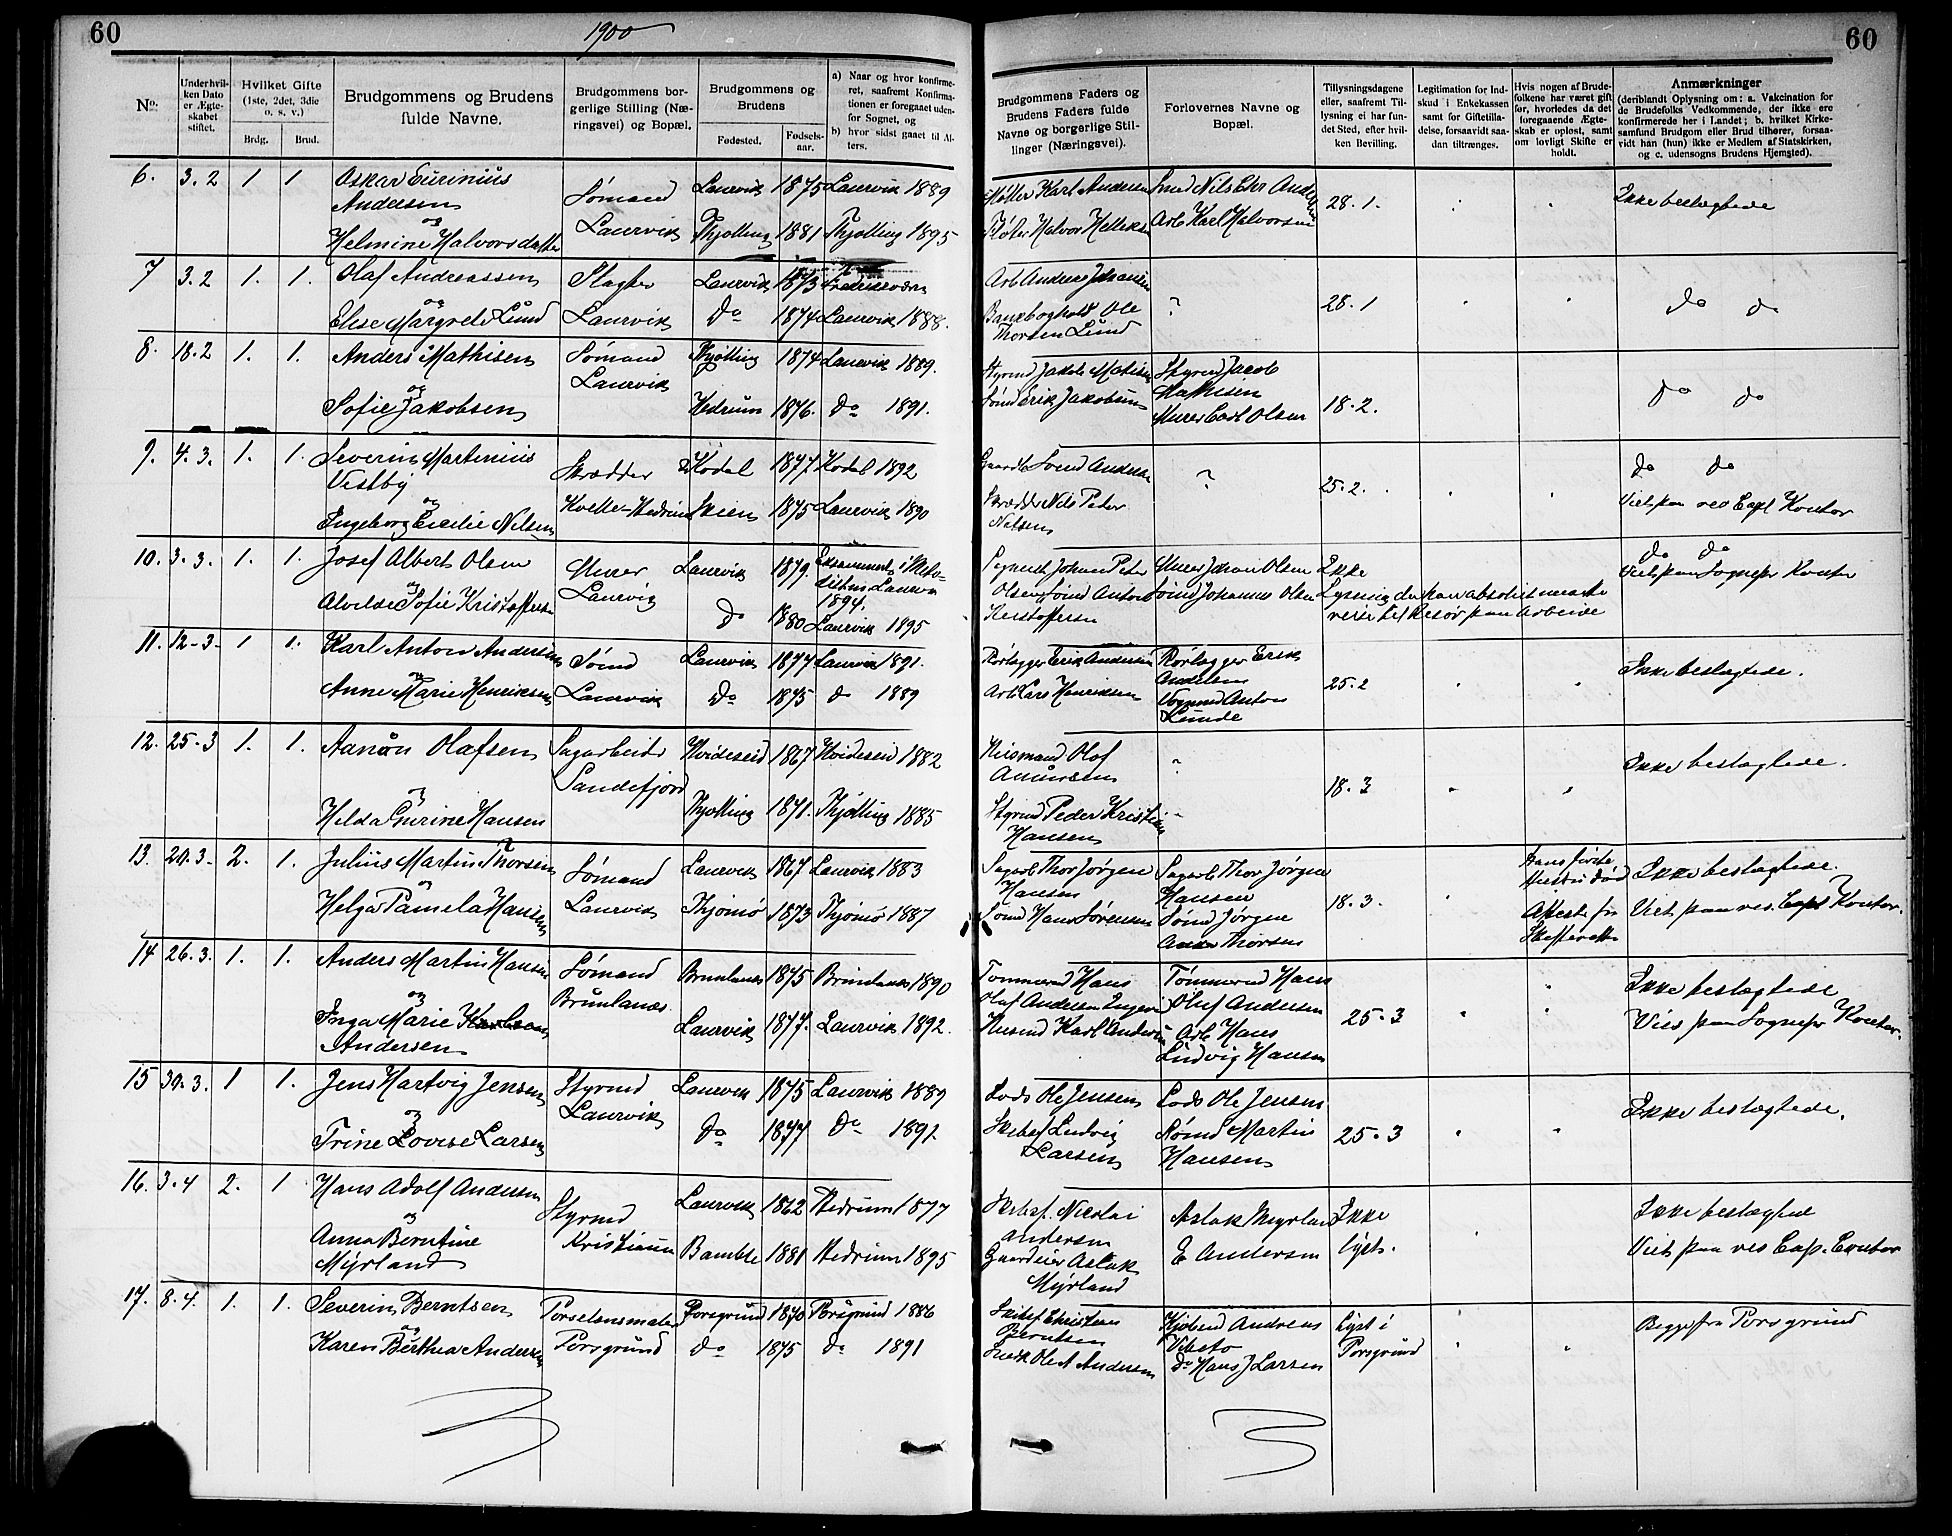 60
1900
60
No.
Underhvil-
ken Dato
er Ægte-
skabet
stiftet.
Hvilket Gifte
(1ste, 2det, 3die
o. s. v.)
Brdg.
Brud.
Brudgommens og Brudens
fulde Navne.
Brudgommens bor-
gerlige Stilling (Næ-
ringsvei) og Bopæl.
Brudgommens og
Brudens
Fødested.
Fødsels-
aar.
a) Naar og hvor konfirme-
ret, saafremt Konfirma-
tionen er foregaaet uden-
for Sognet, og
b) hvor sidst gaaet til Al-
ters.
Brudgommens Faders og
Brudens Faders fulde
Navne og borgerlige Stil-
linger (Næringsvei).
Forlovernes Navne og
Bopæl.
Tillysningsdagene
eller, saafremt Til-
lysning ei har fun-
det Sted, efter hvil-
ken Bevilling.
Legitimation for Ind-
skud i Enkekassen
samt for Giftetilla-
delse, forsaavidt saa-
dan tiltrænges.
Hvis nogen af Brude-
folkene har været gift
før, hvorledes da det
foregaaende Ægte-
skab er opløst, samt
om lovligt Skifte er
holdt.
Anmærkninger
(deriblandt Oplysning om: a. Vakcination for
de Brudefolks Vedkommende, der ikke ere
konfirmerede her i Landet; b. hvilket Kirke-
samfund Brudgom eller Brud tilhører, forsaa-
vidt han (hun) ikke er Medlem af Statskirken,
og c. udensogns Brudens Hjemsted).
6. 3.2 1 1 Oskar Eurinius
Andersen
og
Helmine Halvorsdatter
Sømand
Laurvik
Laurvik 1875 Laurvik 1889
Thjølling 1881 Thjølling 1895
Møller Karl Andersen
Halvor
Arb Karl Halvorsen
28.1.
Ikke beslægtede
7 3.2 1. 1. Olaf Andreassen
og
Elise Margrete Lund
Slagter
Laurvik
Laurvik 1873 Fredriksværn
Do 1874 Laurvik 1888.
Arb Andreas Johansen
Ole
Thorsen Lund
?
28.1
do do
8. 18.2 1. 1. Anders Mathisen
og
Sofie Jakobsen
Sømand
Laurvik
Thjølling 1874 Laurvik 1889.
Hedrum 1876. do 1891.
Styrmd Jakob Matisen
Sømd Erik Jakobsen
Styrmd Jacob
Mathisen
Murer Carl Olsen
18.2.
do do
9. 4.3. 1. 1. Severin Martinius
Vestby
og
Ingeborg Cecilie Nilsen
Skrædder
Kvelle-Hedrum
Kodal 1877 Kodal 1892
Skien 1875 Laurvik 1890
Svend Andersen
Skrædder Nils Peter
Nilsen
?
25.2.
do do
Viet paa res Capl Kontor
10. 3.3. 1. 1. Josef Albert Olsen
og
Alvilde Sofie Kristoffersen
Murer
Laurvig
Laurvik 1879.
1894.
Do 1880 Laurvik 1895
Johan Peter
Olsen, Sømd Anton
Kristoffersen
Murer Johan Olsen
Sømd Johannes Olsen
Ikke
do do
Viet paa Sognepr Kontor
11. 12-3. 1 1. Karl Anton Andersen
og
Anne Marie Henriksen
Sømd
Laurvik
Laurvik 1877 Laurvik 1891.
Do 1875 do 1889
Rørlægger Erik Andersen
Arb Lars Henriksen
Rørlægger Erik
Andersen
Vognmd Anton
Lunde
25.2
Ikke beslægtede.
12. 25-3 1. 1. Aanon Olafsen
og
Helda Gurine Hansen
Sagarbeider
Sandefjord
Hvideseid 1867 Hvideseid 1882
Thjølling 1871. Thjølling 1885
Husmand Olof
Styrmd Peder Kristian
Hansen
?
18.3
Ikke beslægtede.
13. 20.3. 2. 1. Julius Martin Thorsen
og
Helga Pamela Hansen
Sømand
Laurvik
Laurvik 1867 Laurvik 1883
Thjømø 1873 Thjømø 1887
Sagarb Thor Jørgen
Hansen
Sømd Hans Sørensen
Sagarb Thor Jørgen
Hansen
Sømd Jørgen
Thorsen
18.3.
Hans første
Hustru død
Attest fra
Skifteretten
Ikke beslægtede.
Viet paa res. Capl Kontor.
14 26.3. 1. 1. Anders Martin Hansen
og
Inga Marie
Andersen
Sømand
Brunlanæs
Brunlanæs 1875 Brunlanæs 1890
Laurvik 1877. Laurvik 1892.
Tømmermd Hans
Olaf Andersen
Husmd Karl Andersen
Tømmermd Hans
Oluf Andersen
Arb Hans
Ludvig Hansen
25-3
Ikke beslægtede
Viet paa Sognepr Kontor.
15 30.3. 1 1. Jens Hartvig Jensen
og
Trine Lovise Larsen
Styrmd
Laurvik
Laurvik 1875 Laurvik 1889
Do 1877 Do 1892
Lods Ole Jensen
Skibsf Ludvig
Larsen
Lods Ole Jensen
Sømd Martin
Hansen
25-3
Ikke beslægtede.
16. 3.4 2. 1 Hans Adolf Andersen
og
Anna Berntine
Myrland
Styrmd
Kristiania
Laurvik 1862 Hedrum 1877
Bamble 1881 Hedrum 1895
Skibsf. Nicolai
Andersen
Gaardeier Aslak
Myrland
Aslak Myrland
E Andersen
Ikke
lyst.
Ikke beslægtede
Viet paa res Cap. Contor
17. 8.4. 1. 1. Severin Berntsen
og
Karen Berthea Andersen
Porselensmaler
Porsgrund
Porsgrund 1870 Porsgrund 1886
do 1875 do 1891
Skibsf Christian
Berntsen
Ole A Andersen
Kjøbmd Andreas
do Hans J Larsen
Lyst i
Porsgrund
Begge fra Porsgrund